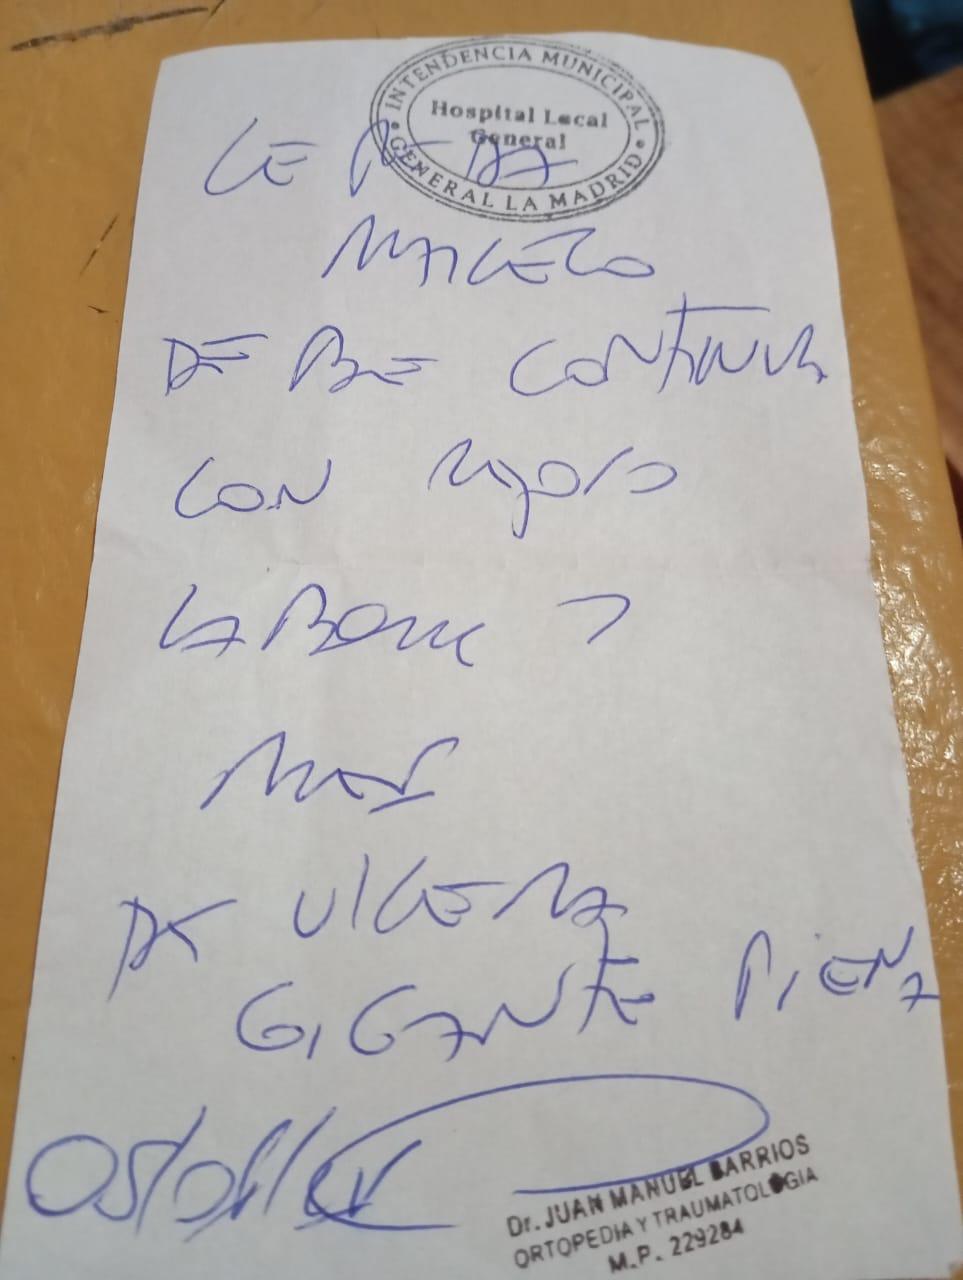 INTENDENCIA MUNICIPAL
Hospital Local
General
GENERAL LA MADRID
CEPEDA
MARCELO
DEBE CONTINUAR
CON REPOSO
LABORAL
MES
DE ULCERA
GIGANTE PIERNA
Dr. JUAN MANUEL BARRIOS
ORTOPEDIA Y TRAUMATOLOGIA
M.P. 229284